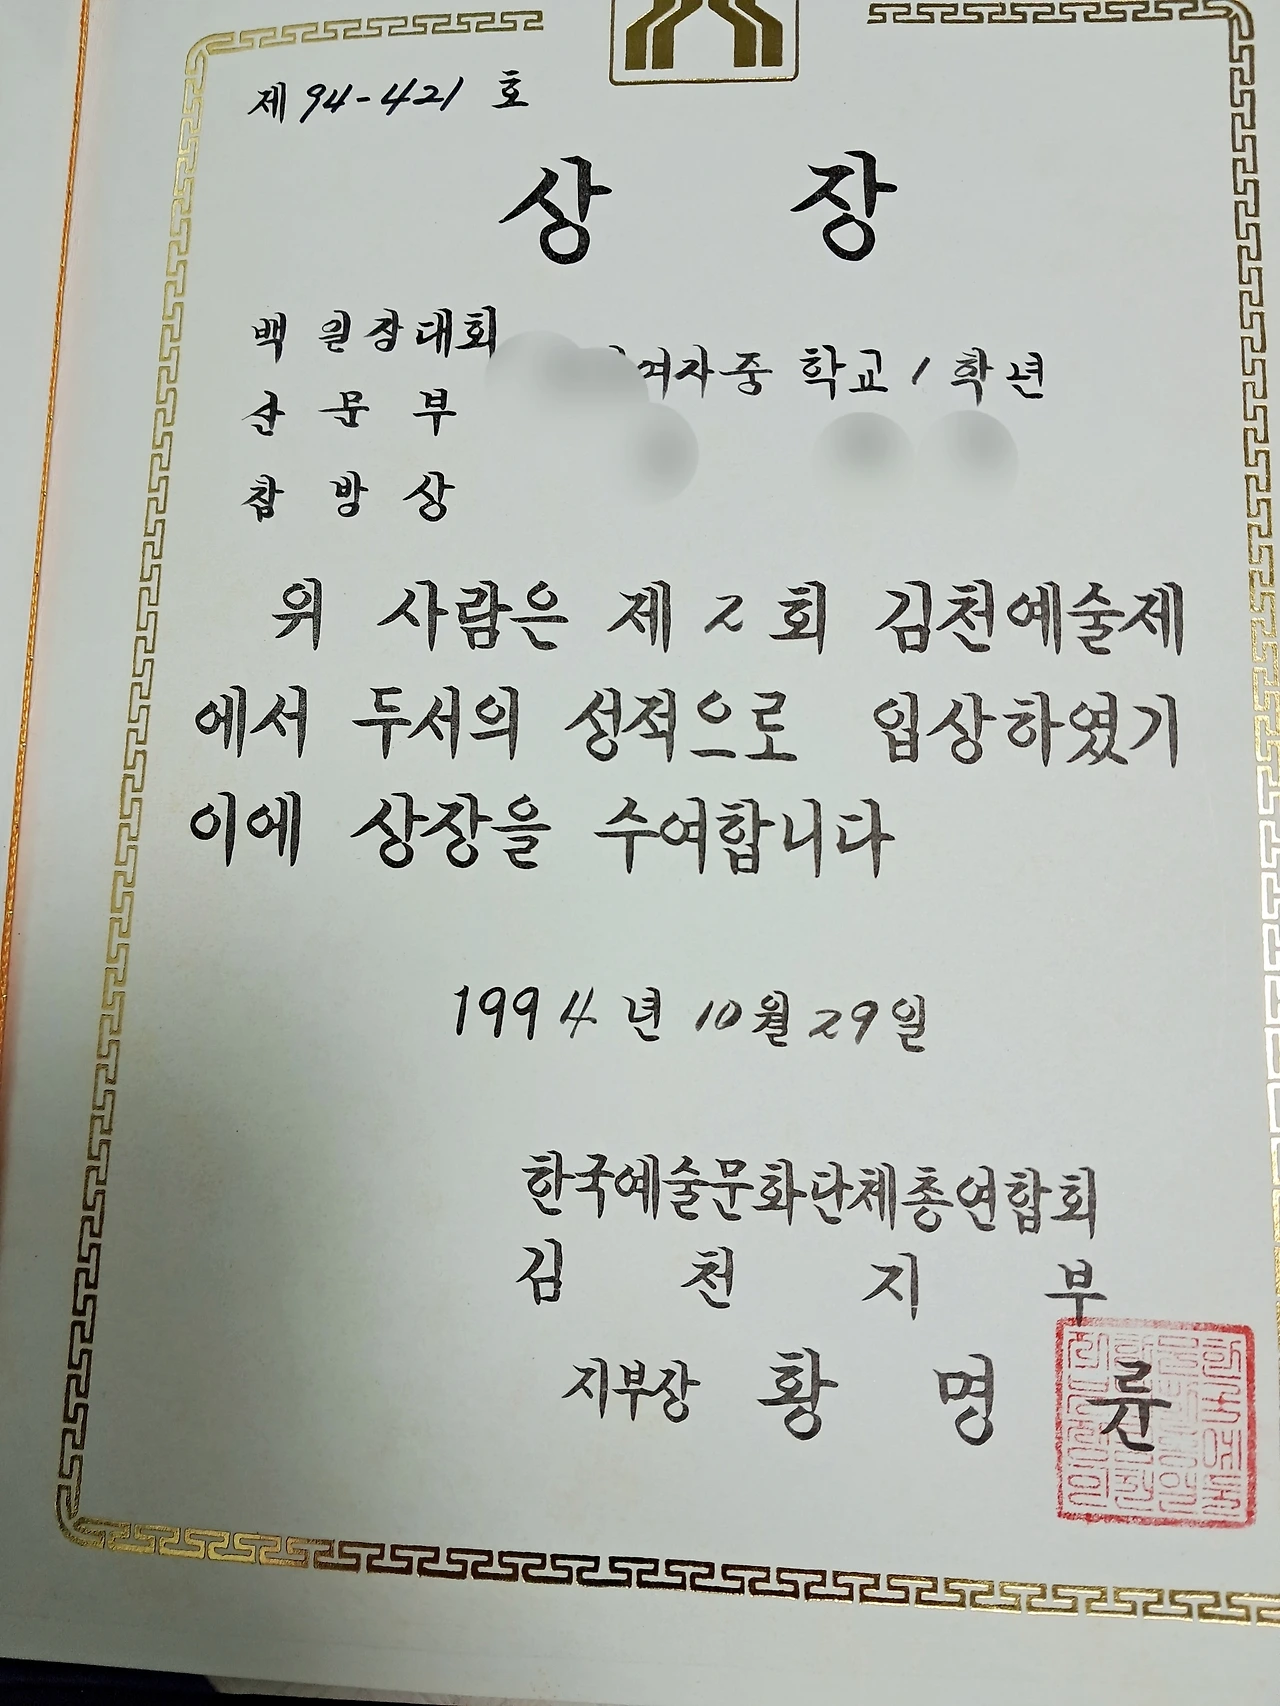 제 94-421 호
상 장
백일장대회
여자중 학교 1 학년
산 문 부
참 방 상
위 사람은 제 2 회 김천예술제
에서 두서의 성적으로 입상하였기
이에 상장을 수여합니다
1994 년 10월 29일
한국예술문화단체총연합회
김 천 지 부
지부장 황 명 륜